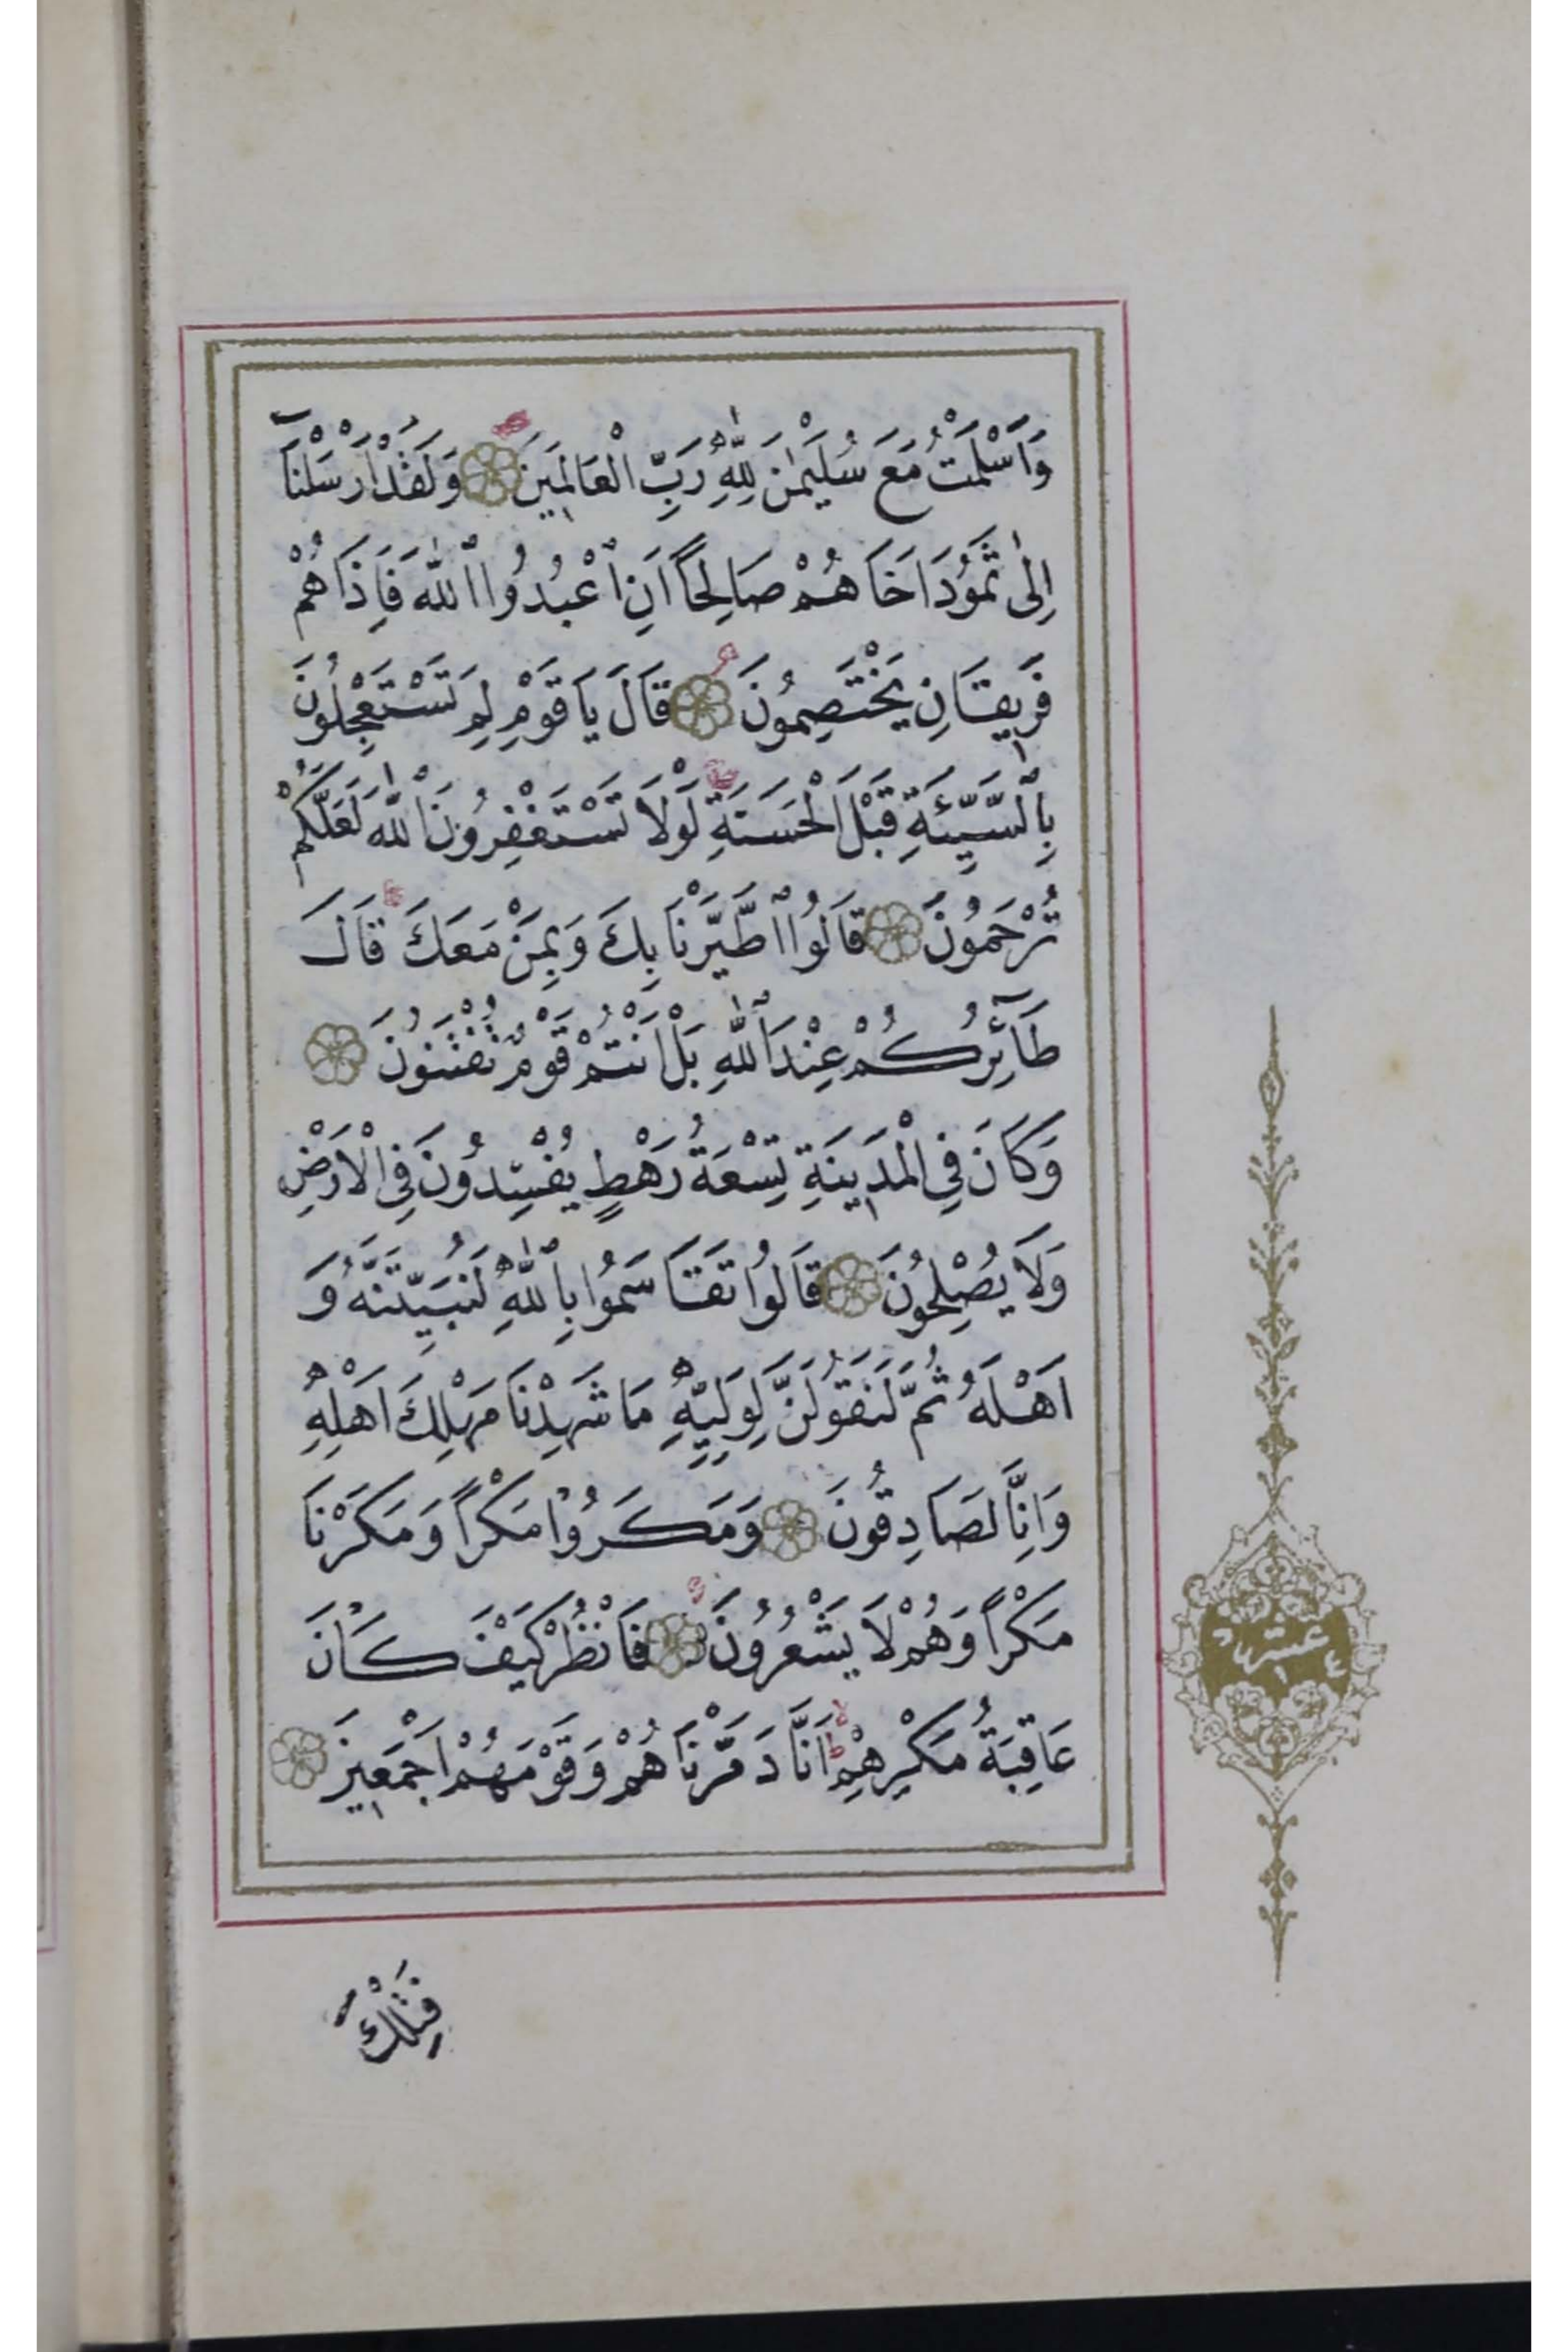 وَاَسْلَمْتُ مَعَ سُلَيْمٰنَ لِلّٰهِ رَبِّ الْعَالَمِينَ وَلَقَدْ اَرْسَلْنَٓا
اِلٰى ثَمُودَ اَخَاهُمْ صَالِحاً اَنِ اعْبُدُوا اللّٰهَ فَاِذَا هُمْ
فَرِيقَانِ يَخْتَصِمُونَ قَالَ يَا قَوْمِ لِمَ تَسْتَعْجِلُونَ
بِالسَّيِّئَةِ قَبْلَ الْحَسَنَةِ لَوْلَا تَسْتَغْفِرُونَ اللّٰهَ لَعَلَّكُمْ
تُرْحَمُونَ قَالُوا اطَّيَّرْنَا بِكَ وَبِمَنْ مَعَكَ قَالَ
طَٓائِرُكُمْ عِنْدَ اللّٰهِ بَلْ اَنْتُمْ قَوْمٌ تُفْتَنُونَ
وَكَانَ فِي الْمَدِينَةِ تِسْعَةُ رَهْطٍ يُفْسِدُونَ فِي الْاَرْضِ
وَلَا يُصْلِحُونَ قَالُوا تَقَاسَمُوا بِاللّٰهِ لَنُبَيِّتَنَّهُ وَ
اَهْلَهُ ثُمَّ لَنَقُولَنَّ لِوَلِيِّهِ مَا شَهِدْنَا مَهْلِكَ اَهْلِهِ
وَاِنَّا لَصَادِقُونَ وَمَكَرُوا مَكْراً وَمَكَرْنَا
مَكْراً وَهُمْ لَا يَشْعُرُونَ فَانْظُرْ كَيْفَ كَانَ
عَاقِبَةُ مَكْرِهِمْ اَنَّا دَمَّرْنَاهُمْ وَقَوْمَهُمْ اَجْمَعِينَ
عشر
فَتِلْكَ